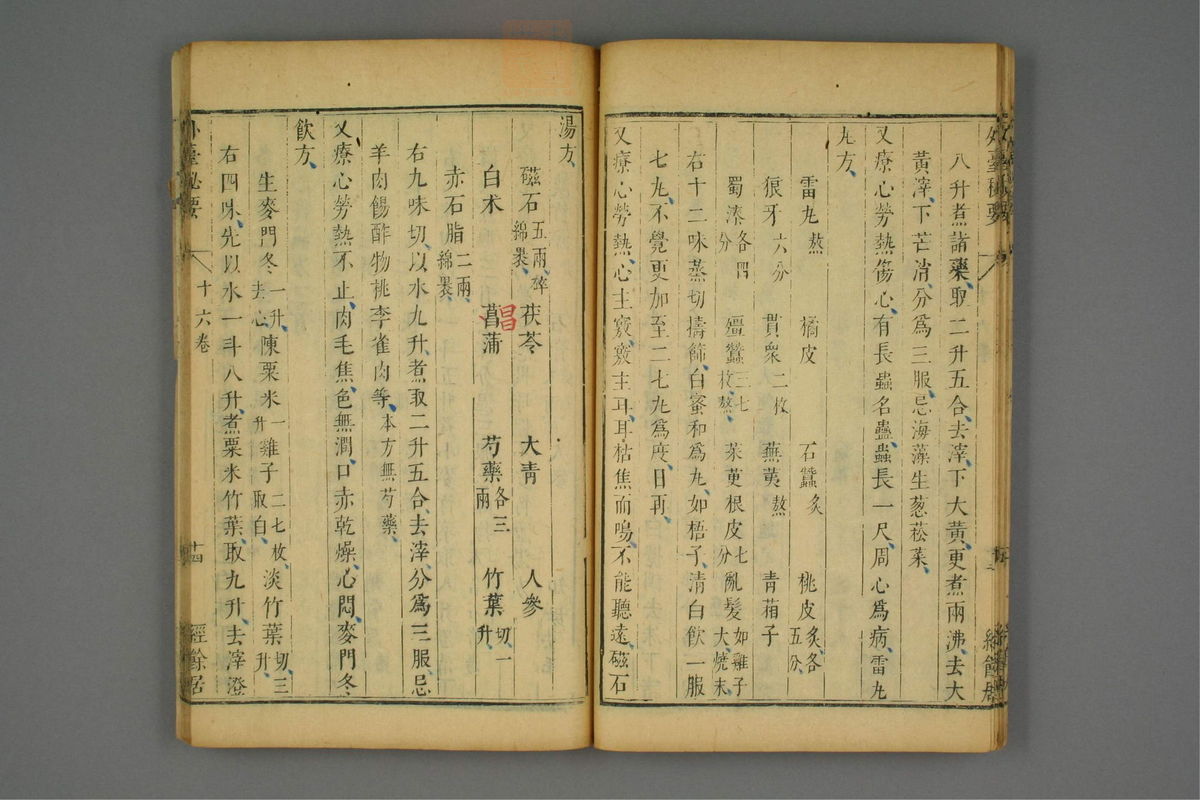 八升煮諸藥、取二升五合、去滓、下大黃、更煮兩沸、去大
黃滓、下芒消、分爲三服、忌海藻生葱菘菜、
又療心勞熱傷心、有長蟲名蠱、蟲長一尺、周心爲病、雷丸
丸方、
雷丸熬 橘皮 石蠶炙 桃皮炙、各五分、
狼牙六分 貫衆二枚 蕪荑熬 青葙子
蜀漆各四分 殭蠶三七枚、熬、 茱萸根皮七分 亂髮如雞子大、燒末、
右十二味、蒸切擣篩、白蜜和爲丸、如梧子、清白飲一服
七丸、不覺更加至二七丸爲度、日再、
又療心勞熱、心主竅、竅主耳、耳枯焦而鳴、不能聽遠、磁石
湯方、
磁石五兩、碎綿裹、 茯苓 大青 人參
白朮 菖蒲 芍藥各三兩 竹葉切、一升、
昌
赤石脂二兩、綿裹、
右九味、切、以水九升、煮取二升五合、去滓、分爲三服、忌
羊肉餳酢物桃李雀肉等、本方無芍藥、
又療心勞熱不止、肉毛焦、色無潤、口赤乾燥、心悶、麥門冬
飲方、
生麥門冬一升、去心、 陳粟米一升 雞子二七枚、取白、 淡竹葉切、三升、
右四味、先以水一斗八升、煮粟米竹葉、取九升、去滓澄
外臺祕要 十六卷 十四 經餘居